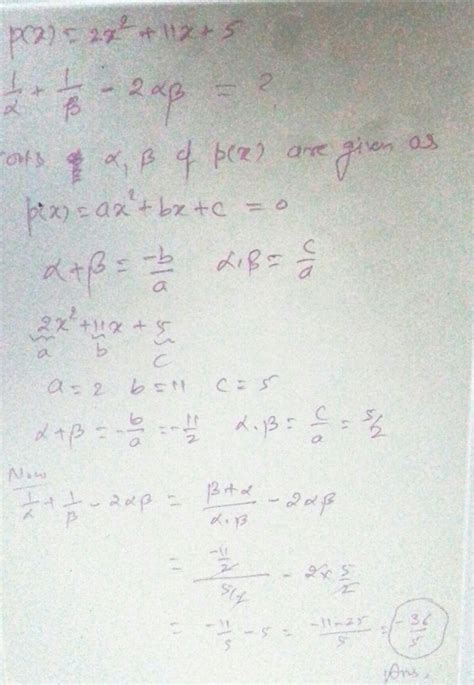 p(x) = 2x² + 11x + 5
1/α + 1/β - 2αβ = ?
α, β of p(x) are given as
p(x) = ax² + bx + c = 0
α + β = -b/a   α.β = c/a
2x² + 11x + 5
a b c
a = 2  b = 11  c = 5
α + β = -b/a = -11/2   α.β = c/a = 5/2
Now
1/α + 1/β - 2αβ = (β + α)/(α.β) - 2αβ
= (-11/2)/(5/2) - 2 × 5/2
= -11/5 - 5 = (-11 - 25)/5 = -36/5
Ans.